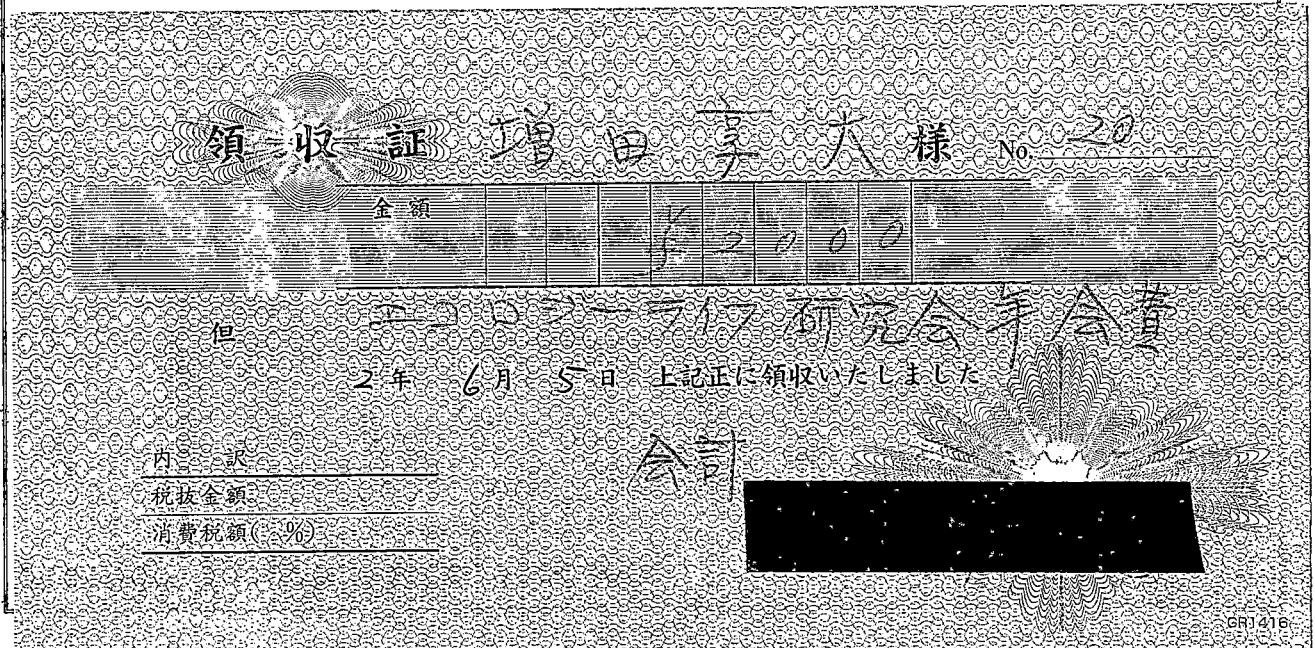 領収証 増田享大様 No. 20
金額 ¥2000
但 エコロジーライフ研究会年会費
2年 6月 5日 上記正に領収いたしました
会計
内訳
税抜金額
消費税額( %)
GR1416